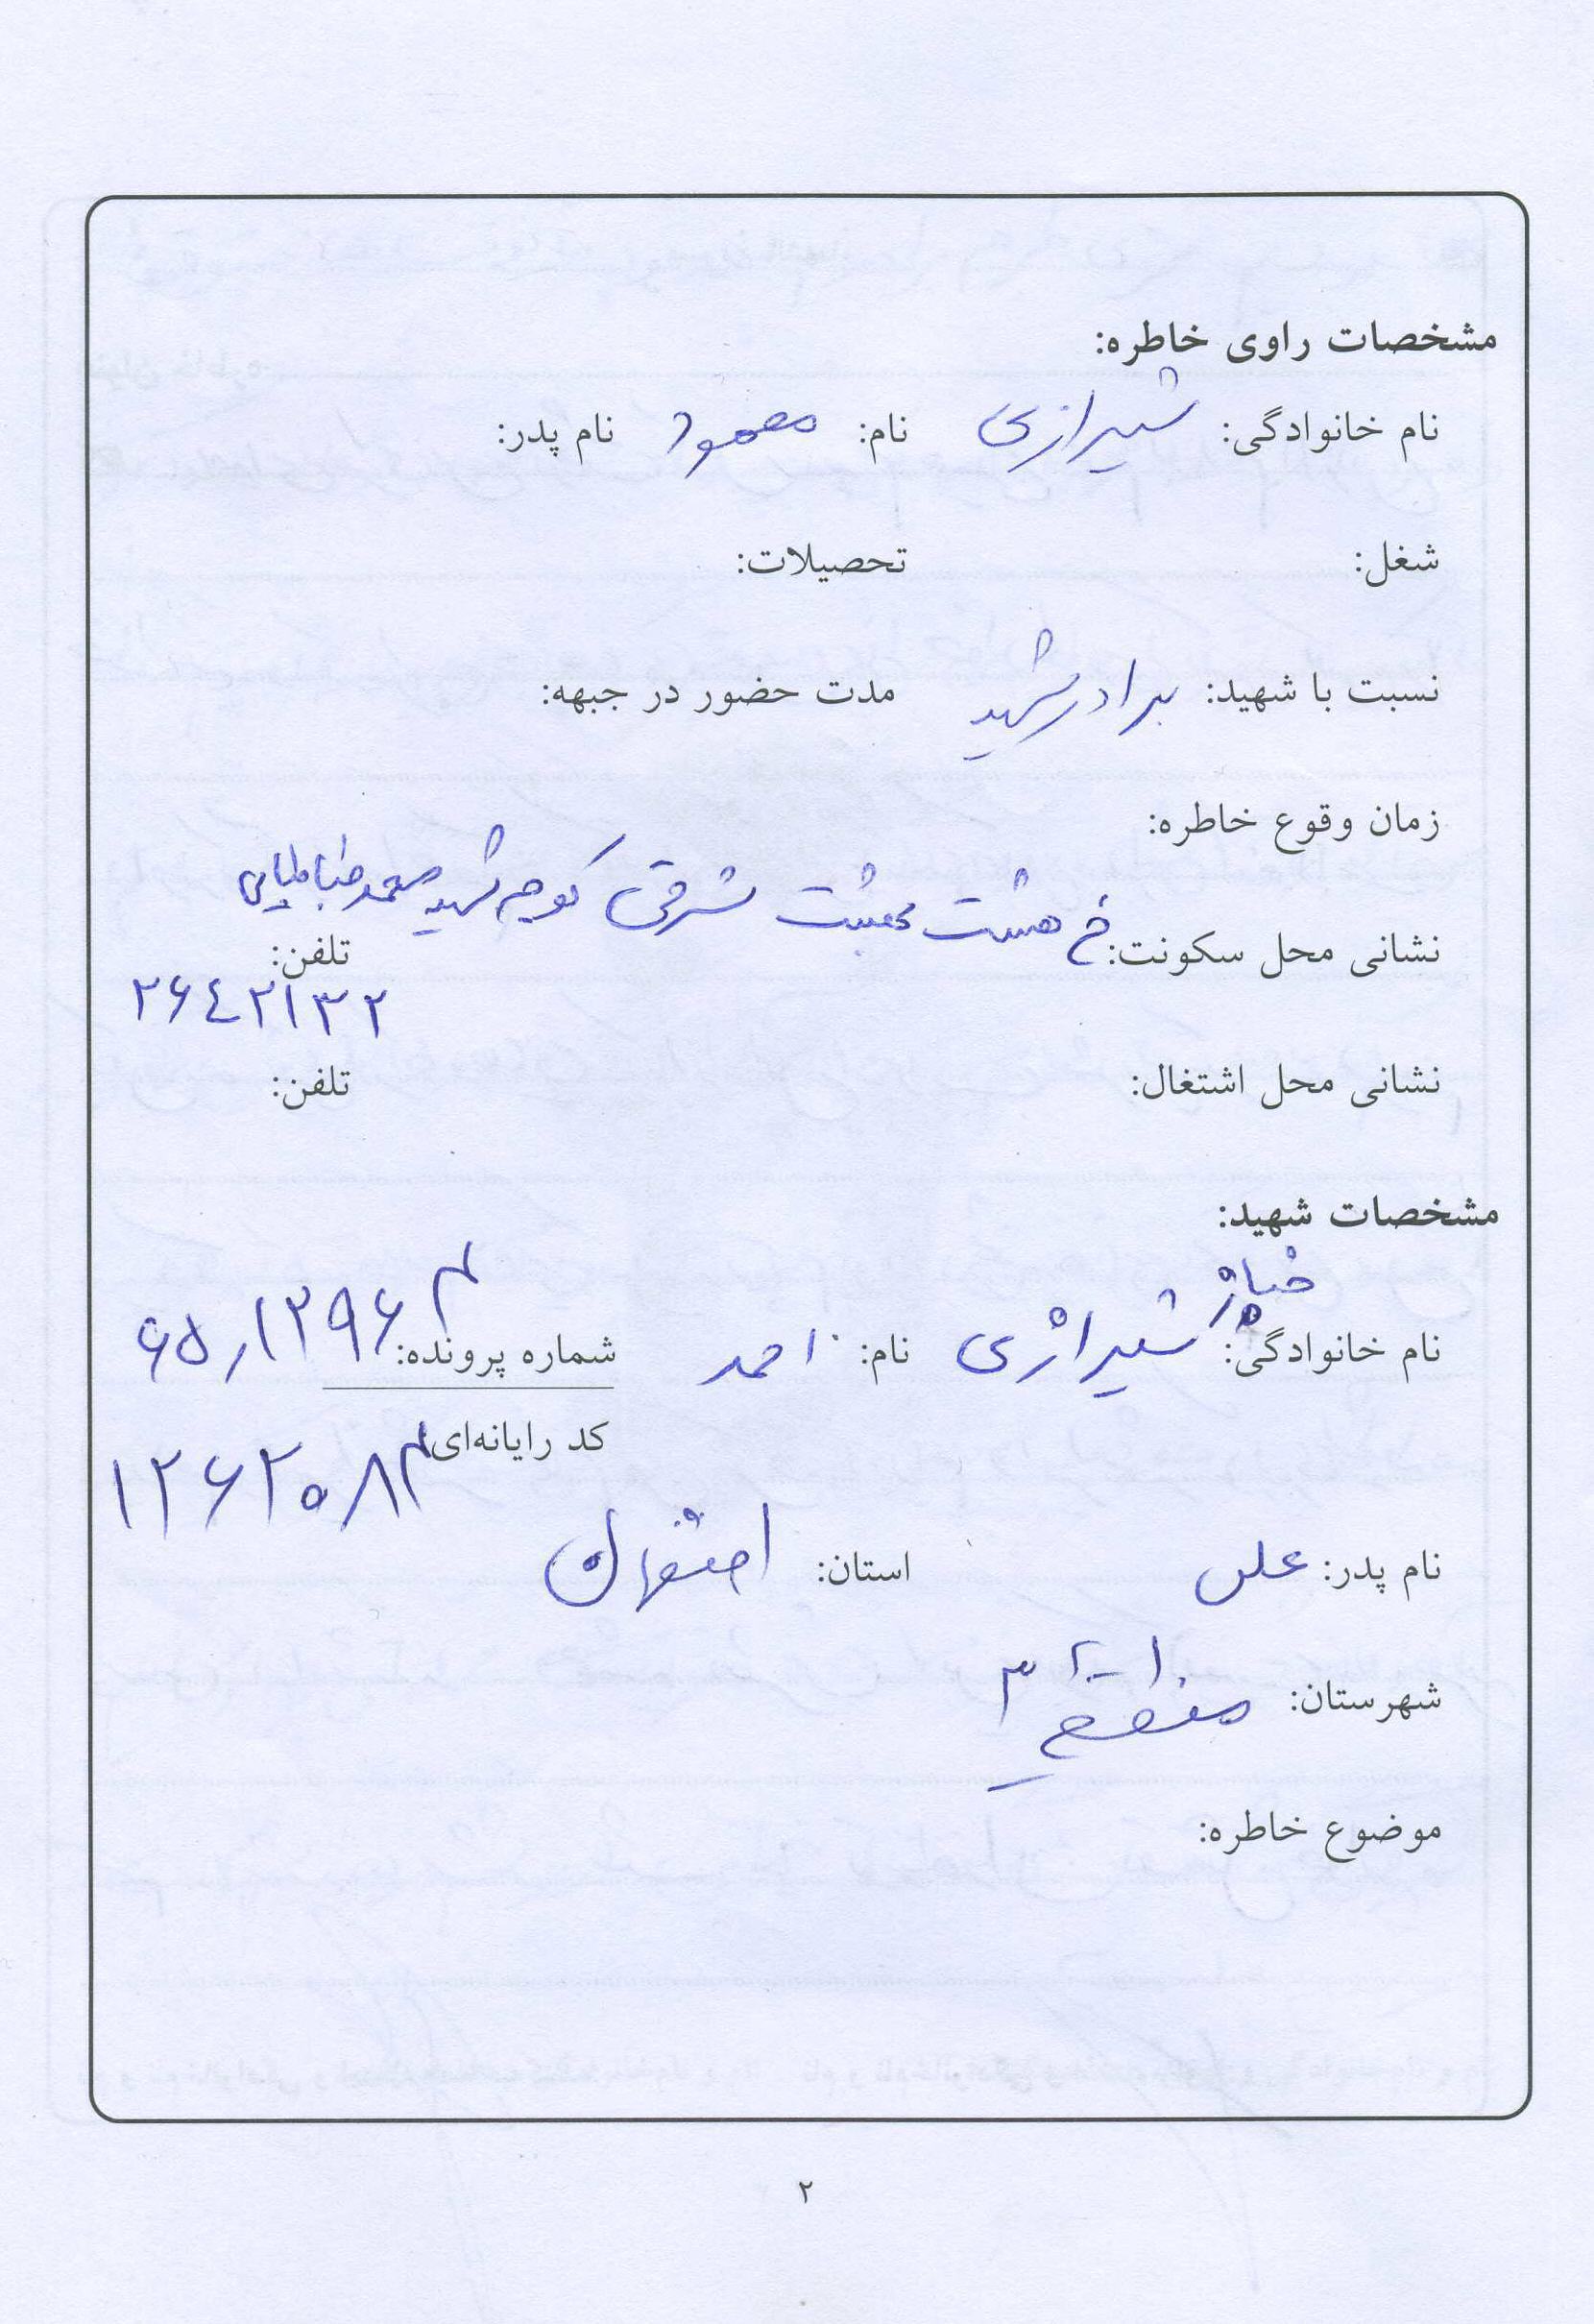 مشخصات راوی خاطره:
نام خانوادگی: شیرازی نام: محمود نام پدر:
شغل: تحصیلات:
نسبت با شهید: برادر شهید مدت حضور در جبهه:
زمان وقوع خاطره:
نشانی محل سکونت: خ هشت بهشت شرقی کوچه شهید محمد طباطبایی تلفن:
۲۶۴۲۱۳۲
نشانی محل اشتغال: تلفن:
مشخصات شهید:
خباز
نام خانوادگی: شیرازی نام: احمد شماره پرونده: ۶۵/۱۲۹۶۳
کد رایانه‌ای ۱۲۶۲۰۸۳
نام پدر: علی استان: اصفهان
شهرستان: منطقه ۳
موضوع خاطره:
۲